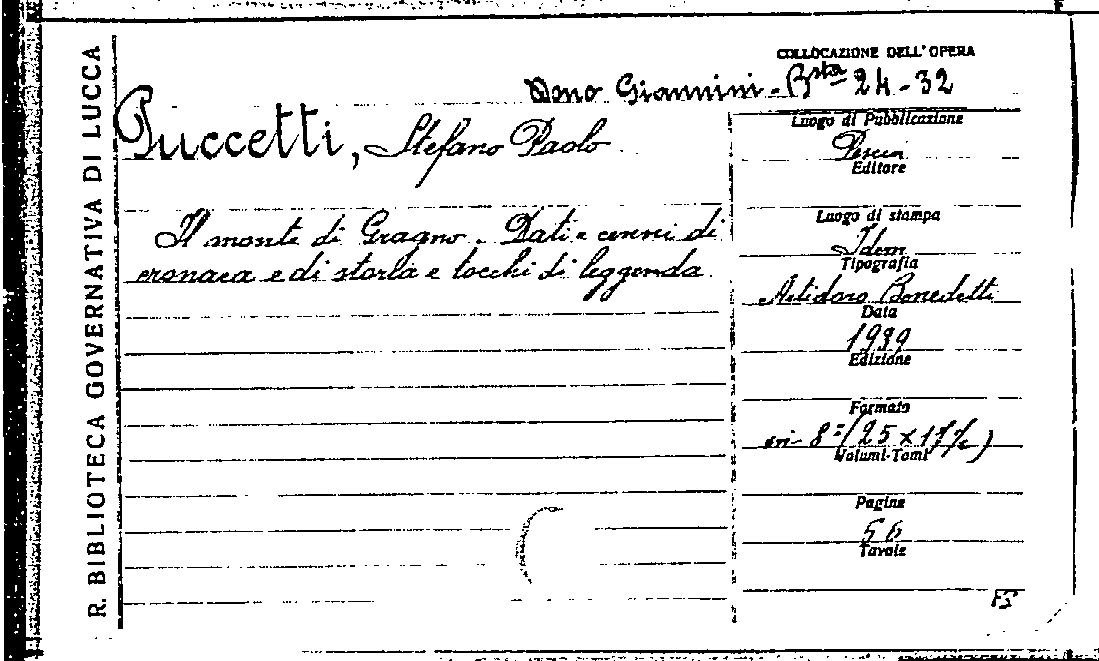 R. BIBLIOTECA GOVERNATIVA DI LUCCA
COLLOCAZIONE DELL'OPERA
Dono Giannini - Bsta 24-32
Puccetti, Stefano Paolo
Il monte di Gragno. Dati e cenni di
cronaca e di storia e tocchi di leggenda.
Luogo di Pubblicazione
Pescia
Editore
Luogo di stampa
Idem
Tipografia
Artidoro Benedetti
Data
1939
Edizione
Formato
in 8° (25 x 17
Volumi-Tomi
Pagine
56
Tavole
FS